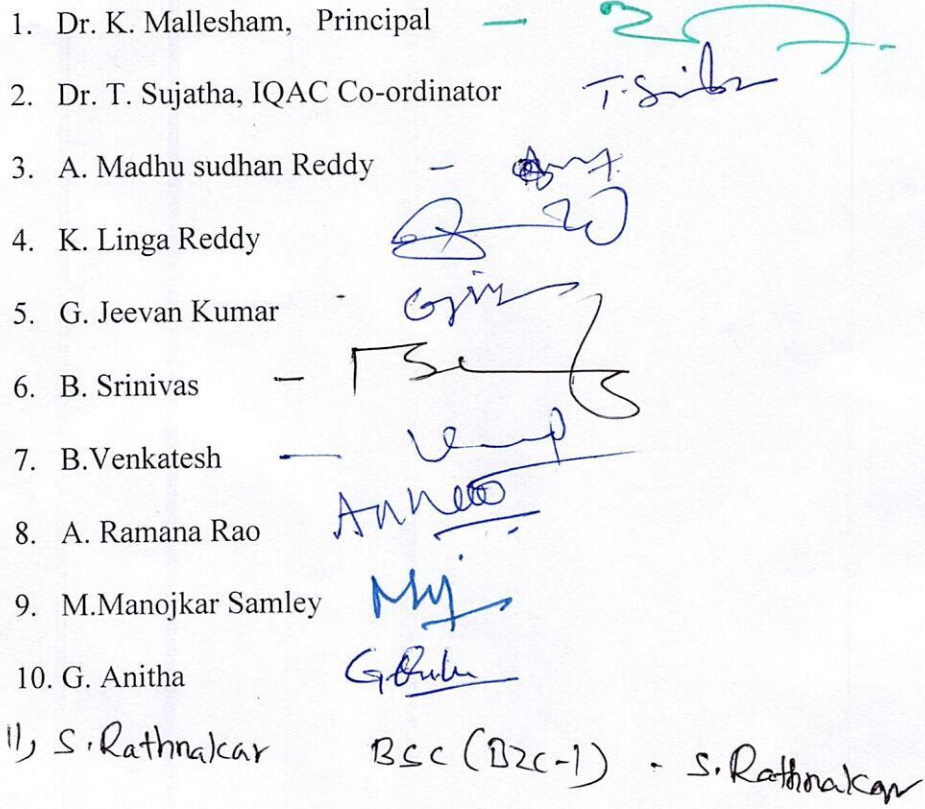 1. Dr. K. Mallesham, Principal —
2. Dr. T. Sujatha, IQAC Co-ordinator
3. A. Madhu sudhan Reddy –
4. K. Linga Reddy
5. G. Jeevan Kumar -
6. B. Srinivas –
7. B.Venkatesh —
8. A. Ramana Rao
9. M.Manojkar Samley
10. G. Anitha
11) S. Rathnakar BSC (BZC-1) - S. Rathnakar